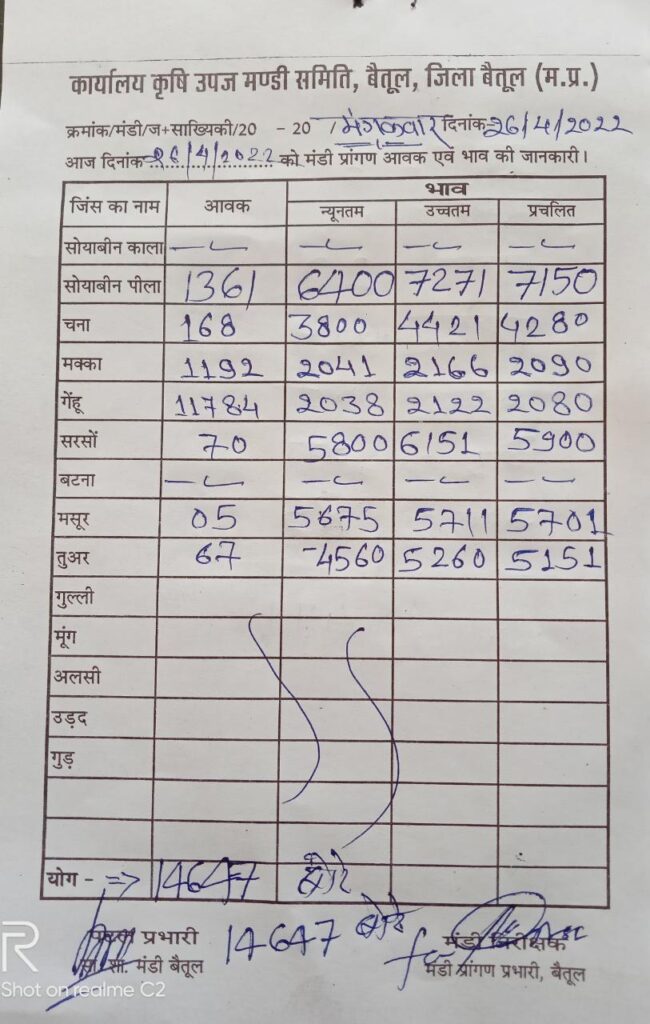 कार्यालय कृषि उपज मण्डी समिति, बैतूल, जिला बैतूल (म.प्र.)
क्रमांक/मंडी/ज+साख्यिकी/20 - 20 / मंगलवार दिनांक 26/4/2022
आज दिनांक 26/4/2022 को मंडी प्रांगण आवक एवं भाव की जानकारी।
जिंस का नाम आवक भाव
न्यूनतम उच्चतम प्रचलित
सोयाबीन काला — — — —
सोयाबीन पीला 1361 6400 7271 7150
चना 168 3800 4421 4280
मक्का 1192 2041 2166 2090
गेंहू 11784 2038 2122 2080
सरसों 70 5800 6151 5900
बटना — — — —
मसूर 05 5675 5711 5701
तुअर 67 4560 5260 5151
गुल्ली
मूंग
अलसी
उड़द
गुड़
योग - => 14647 बोरे
14647 बोरे
प्रभारी मंडी निरीक्षक
मंडी बैतूल मंडी प्रांगण प्रभारी, बैतूल
R
Shot on realme C2